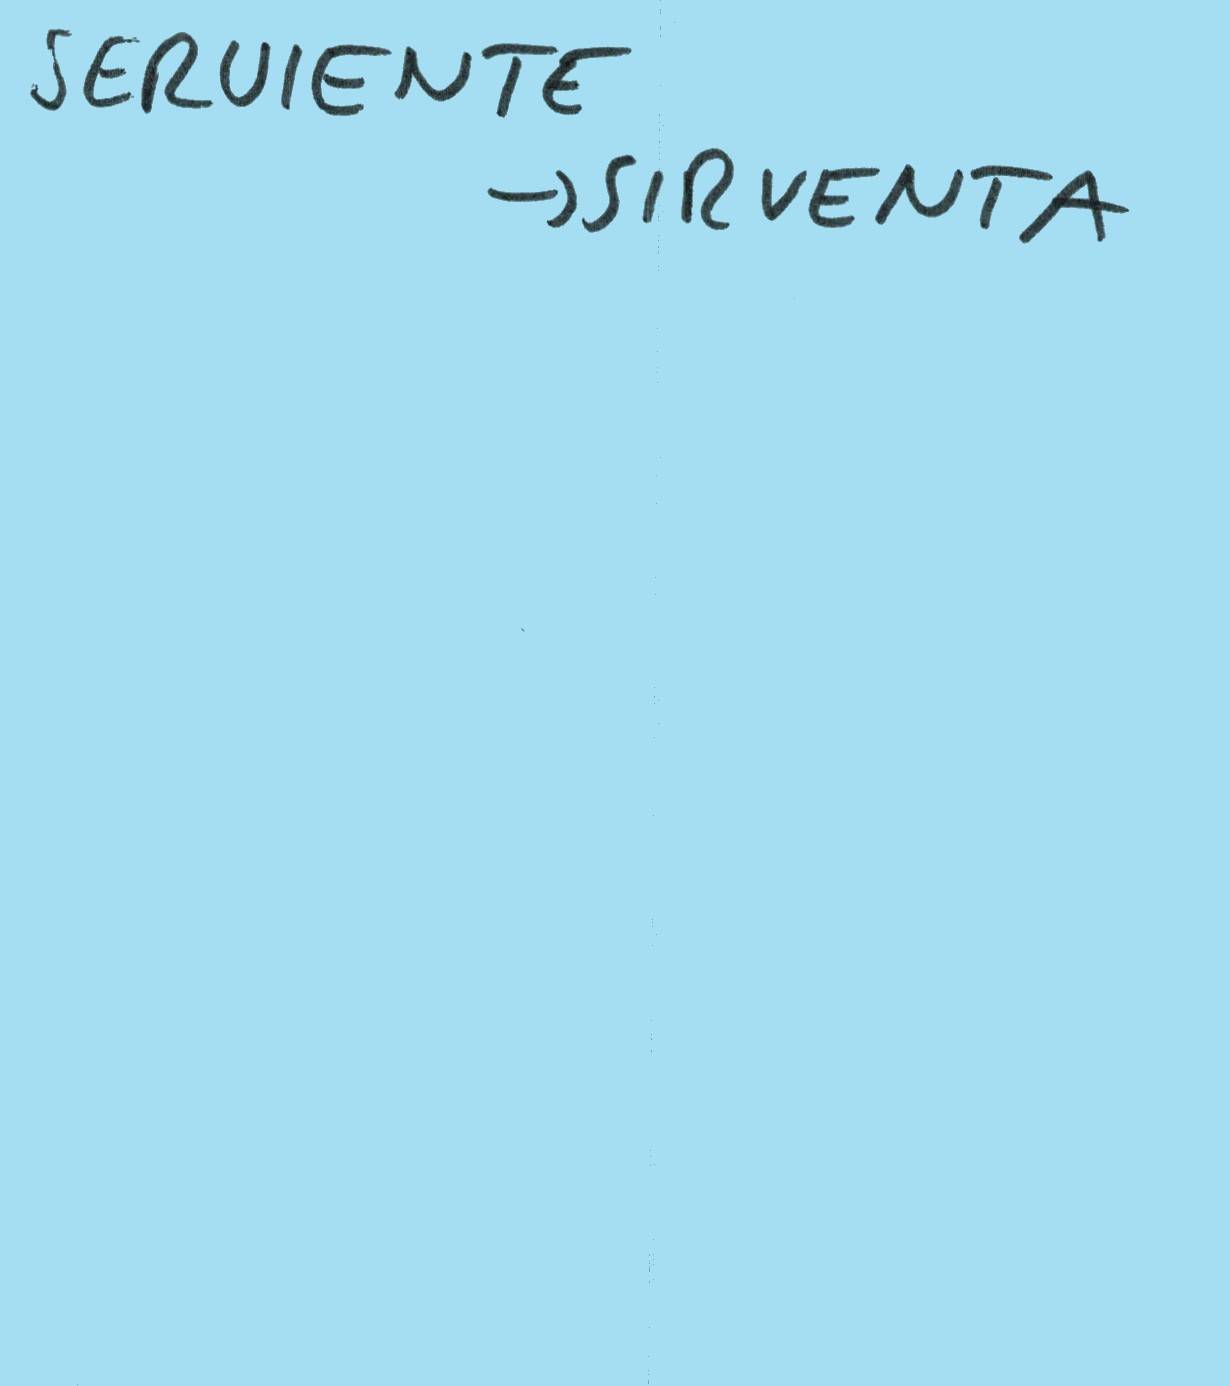 SERUIENTE
→SIRVENTA